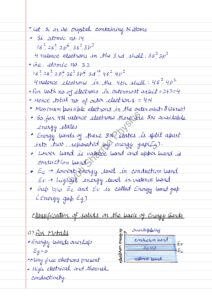 • Let Si or Ge crystal containing N atoms
• Si atomic no. 14
1s² 2s² 2p⁶ 3s² 3p²
4 valence electrons in the 3rd shell: 3s² 3p²
• Ge: atomic no. 32
1s² 2s² 2p⁶ 3s² 3p⁶ 3d¹⁰ 4s² 4p²
4 valence electrons in the 4th shell: 4s² 4p²
• For both no of electrons in outermost orbit = 2+2=4
• Hence total no of outer electrons = 4N
• Maximum possible electrons in the outer orbit 8
• So for 4N valence electrons there are 8N available
energy states
• Energy bands of these 8N states is split apart
into two, separated by energy gap Eg:-
• Lower band is valence band and upper band is
conduction band
• Ec → lowest energy level in conduction band
• Ev → highest energy level in valence band
• Gap b/w Ec and Ev is called Energy band gap
(energy gap Eg)
Classification of solids on the basis of Energy Bands
For Metals
• Energy bands overlap
Eg = 0
• Very free electrons present
• High electrical and thermal
conductivity
overlapping
conduction band
Eg = 0
valence band
Ev
Ec
electron energy